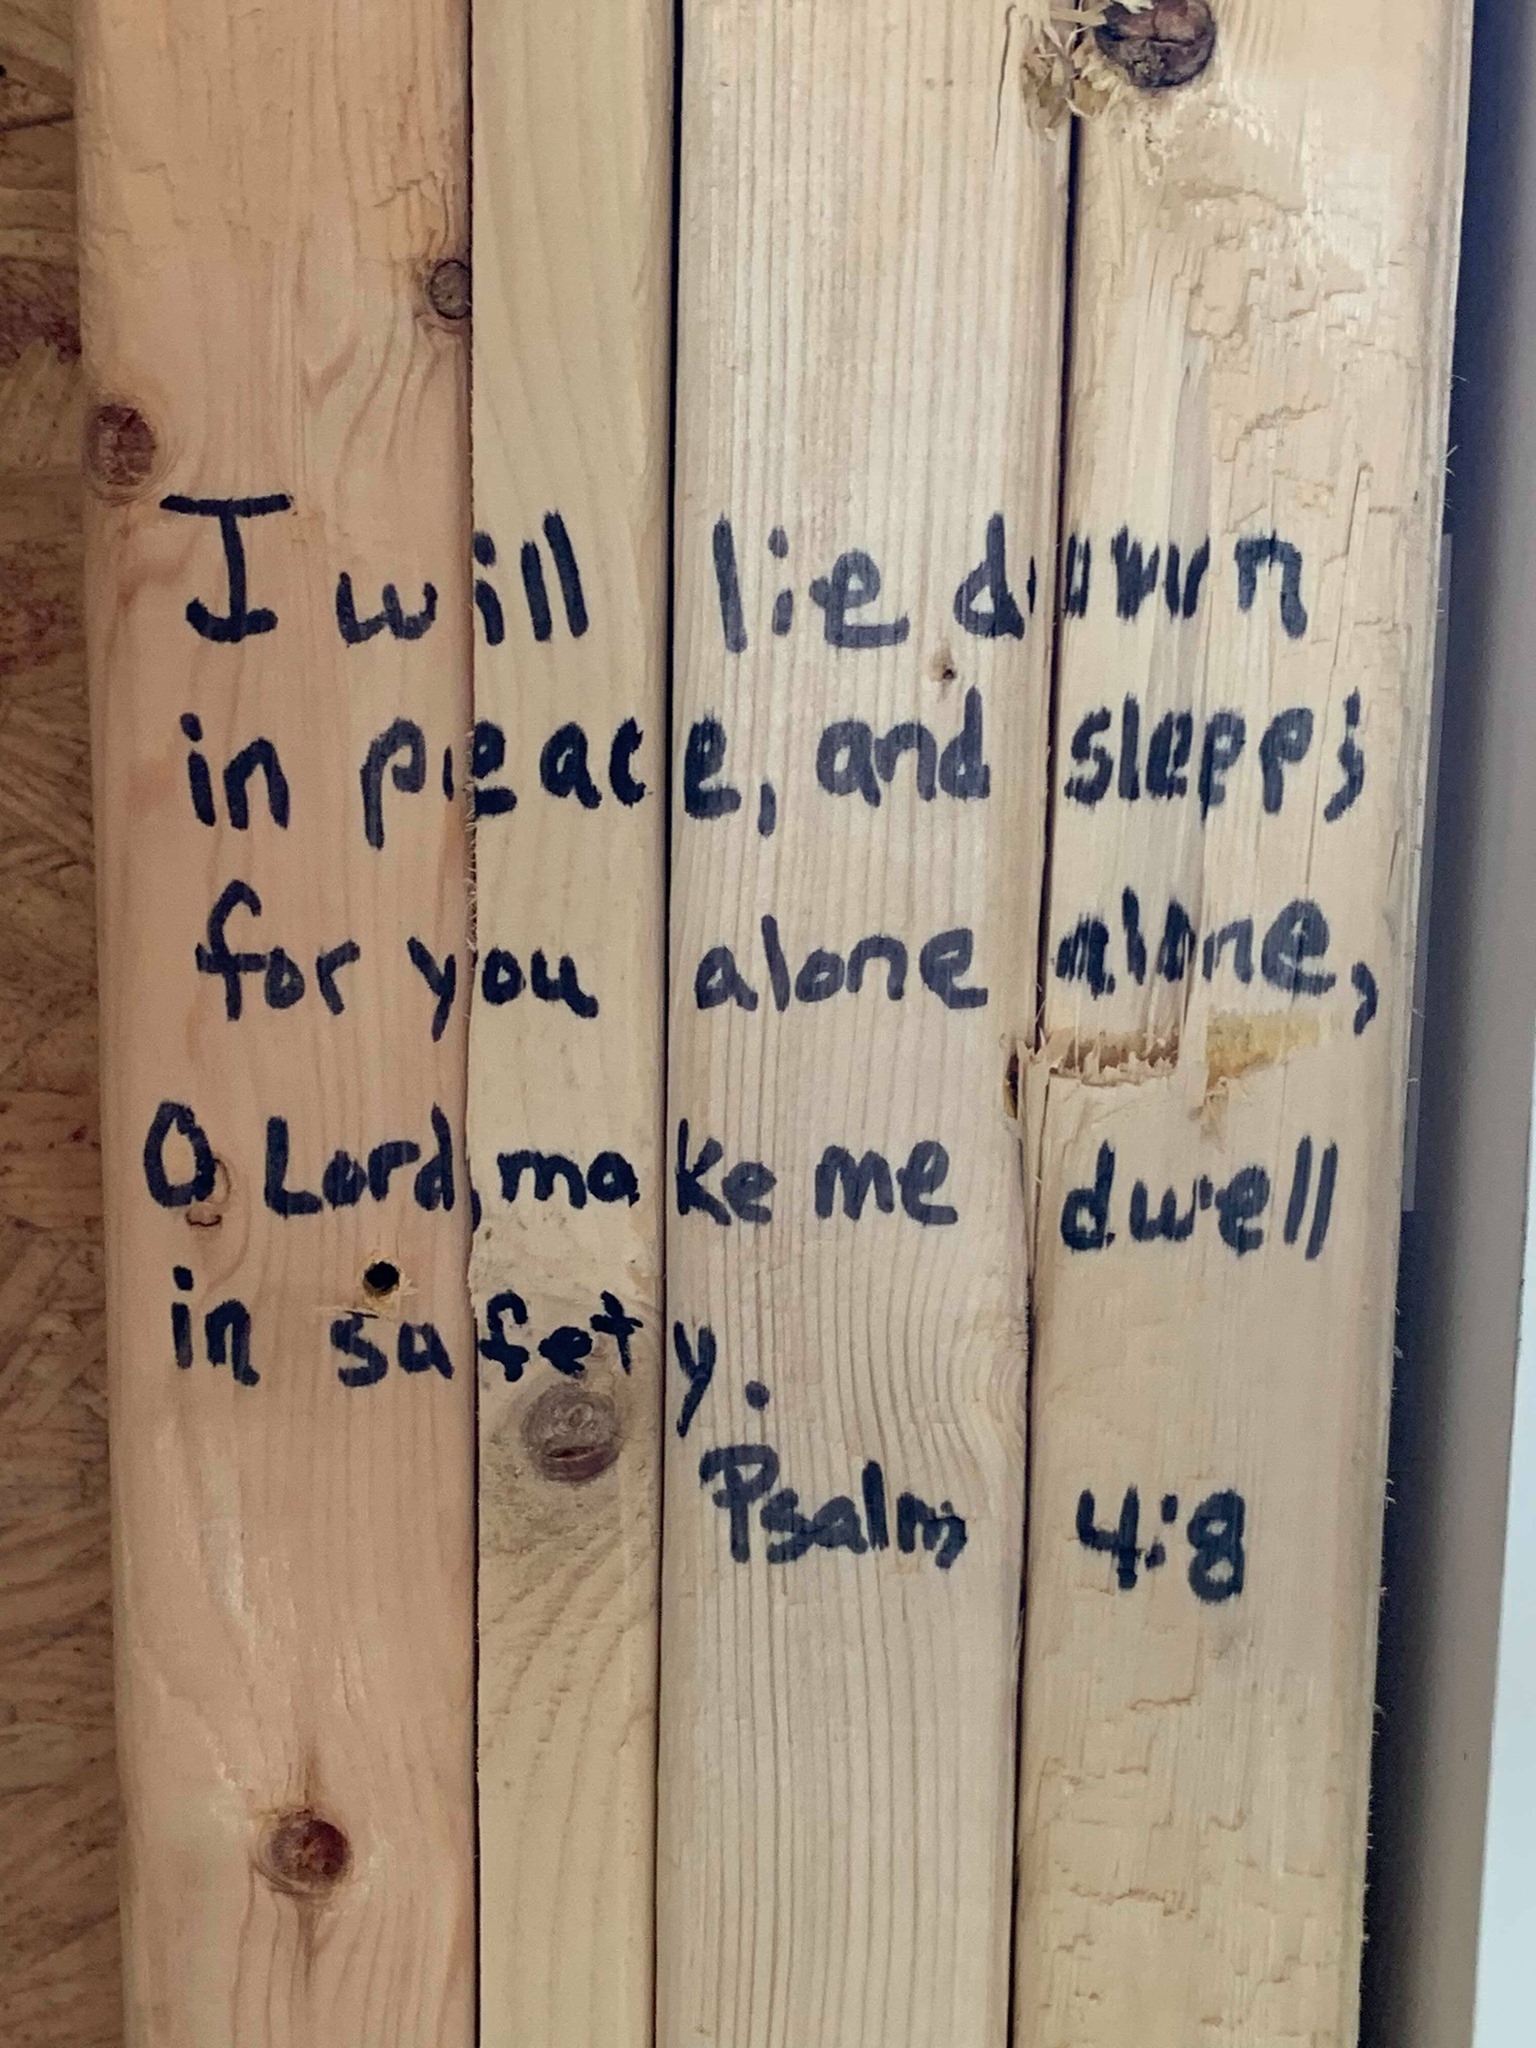 I will lie down
in peace, and sleep;
for you alone alone,
O Lord, make me dwell
in safety.
Psalm 4:8